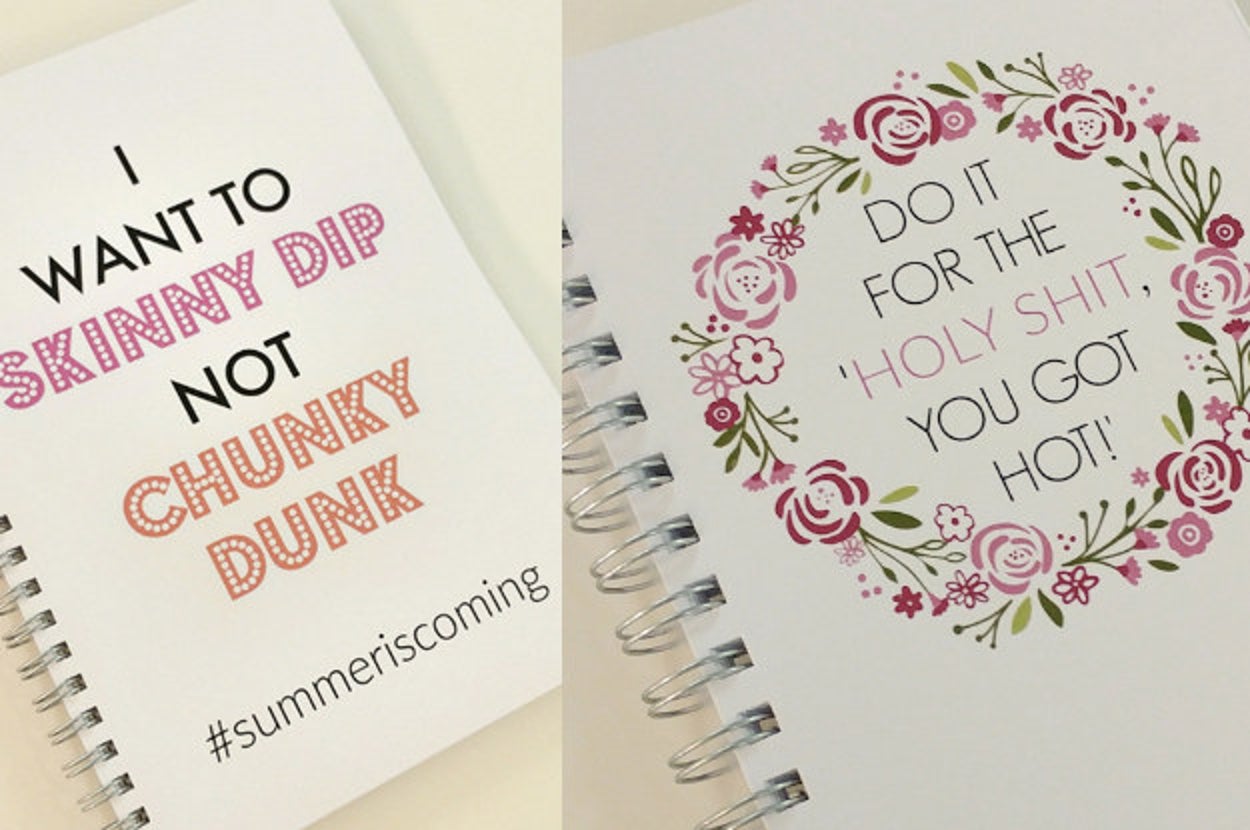 I
WANT TO
SKINNY DIP
NOT
CHUNKY
DUNK
#summeriscoming
DO IT
FOR THE
'HOLY SHIT,
YOU GOT
HOT!'